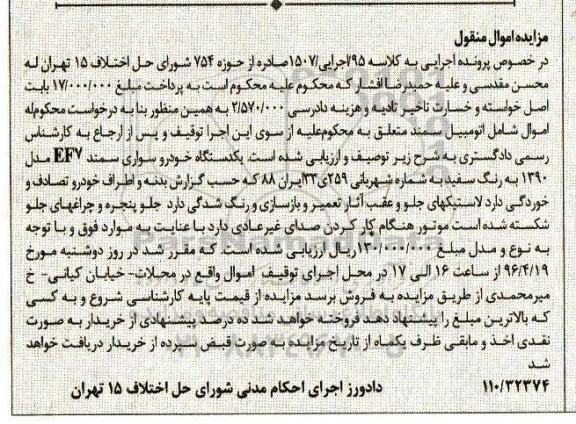 مزایده اموال منقول
در خصوص پرونده اجرایی به کلاسه ۹۵/اجرایی/۱۵۰۷صادره از حوزه ۷۵۴ شورای حل اختلاف ۱۵ تهران له
محسن مقدسی و علیه حمیدرضا افشار که محکوم علیه محکوم است به پرداخت مبلغ ۱۷/۰۰۰/۰۰۰ بابت
اصل خواسته و خسارت تاخیر تادیه و هزینه دادرسی ۲/۵۷۰/۰۰۰ به همین منظور بنا به درخواست محکوم‌له
اموال شامل اتومبیل سمند متعلق به محکوم‌علیه از سوی این اجرا توقیف و پس از ارجاع به کارشناس
رسمی دادگستری به شرح زیر توصیف و ارزیابی شده است. یکدستگاه خودرو سواری سمند EF۷ مدل
۱۳۹۰ به رنگ سفید به شماره شهربانی ۲۵۹ی۳۳ایران ۸۸ که حسب گزارش بدنه و اطراف خودرو تصادف و
خوردگی دارد لاستیکهای جلو و عقب آثار تعمیر و بازسازی و رنگ شدگی دارد جلو پنجره و چراغهای جلو
شکسته شده است موتور هنگام کار کردن صدای غیرعادی دارد با عنایت به موارد فوق و با توجه
به نوع و مدل مبلغ ۱۳۰/۰۰۰/۰۰۰ریال ارزیابی شده است. که مقرر شد در روز دوشنبه مورخ
۹۶/۴/۱۹ از ساعت ۱۶ الی ۱۷ در محل اجرای توقیف اموال واقع در محلات- خیابان کیانی- خ
میرمحمدی از طریق مزایده به فروش برسد مزایده از قیمت پایه کارشناسی شروع و به کسی
که بالاترین مبلغ را پیشنهاد دهد فروخته خواهد شد ده درصد پیشنهادی از خریدار به صورت
نقدی اخذ و مابقی ظرف یکماه از تاریخ مزایده به صورت قبض سپرده از خریدار دریافت خواهد
شد
۱۱۰/۳۲۳۷۴ دادورز اجرای احکام مدنی شورای حل اختلاف ۱۵ تهران